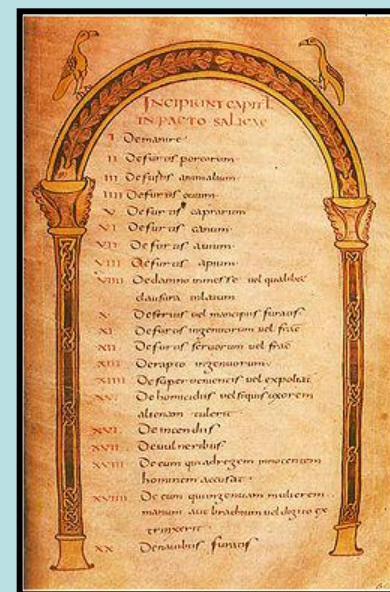 INCIPIUNT CAPITL
IN PACTO SALICAE
I De manire
II De furtis porcorum
III De furtis animalium
IIII De furtis ouium
V De furtis caprarum
VI De furtis canum
VII De furtis auium
VIII De furtis apium
VIIII De damno in messe vel qualibet
clausura inlatum
X De seruis vel mancipiis furatis
XI De furtis ingenuorum vel frac
XII De furtis seruorum vel frac
XIII De rapto ingenuorum
XIIII De superuenientis vel expoliat
XV De homicidiis vel si quis uxorem
alienam tulerit
XVI De incendiis
XVII De uulneribus
XVIII De eum qui ad regem innocentem
hominem accusat
XVIIII De eum qui ingenuam mulierem
manum aut brachium vel digito ex
trinxerit
XX De nauibus furatis